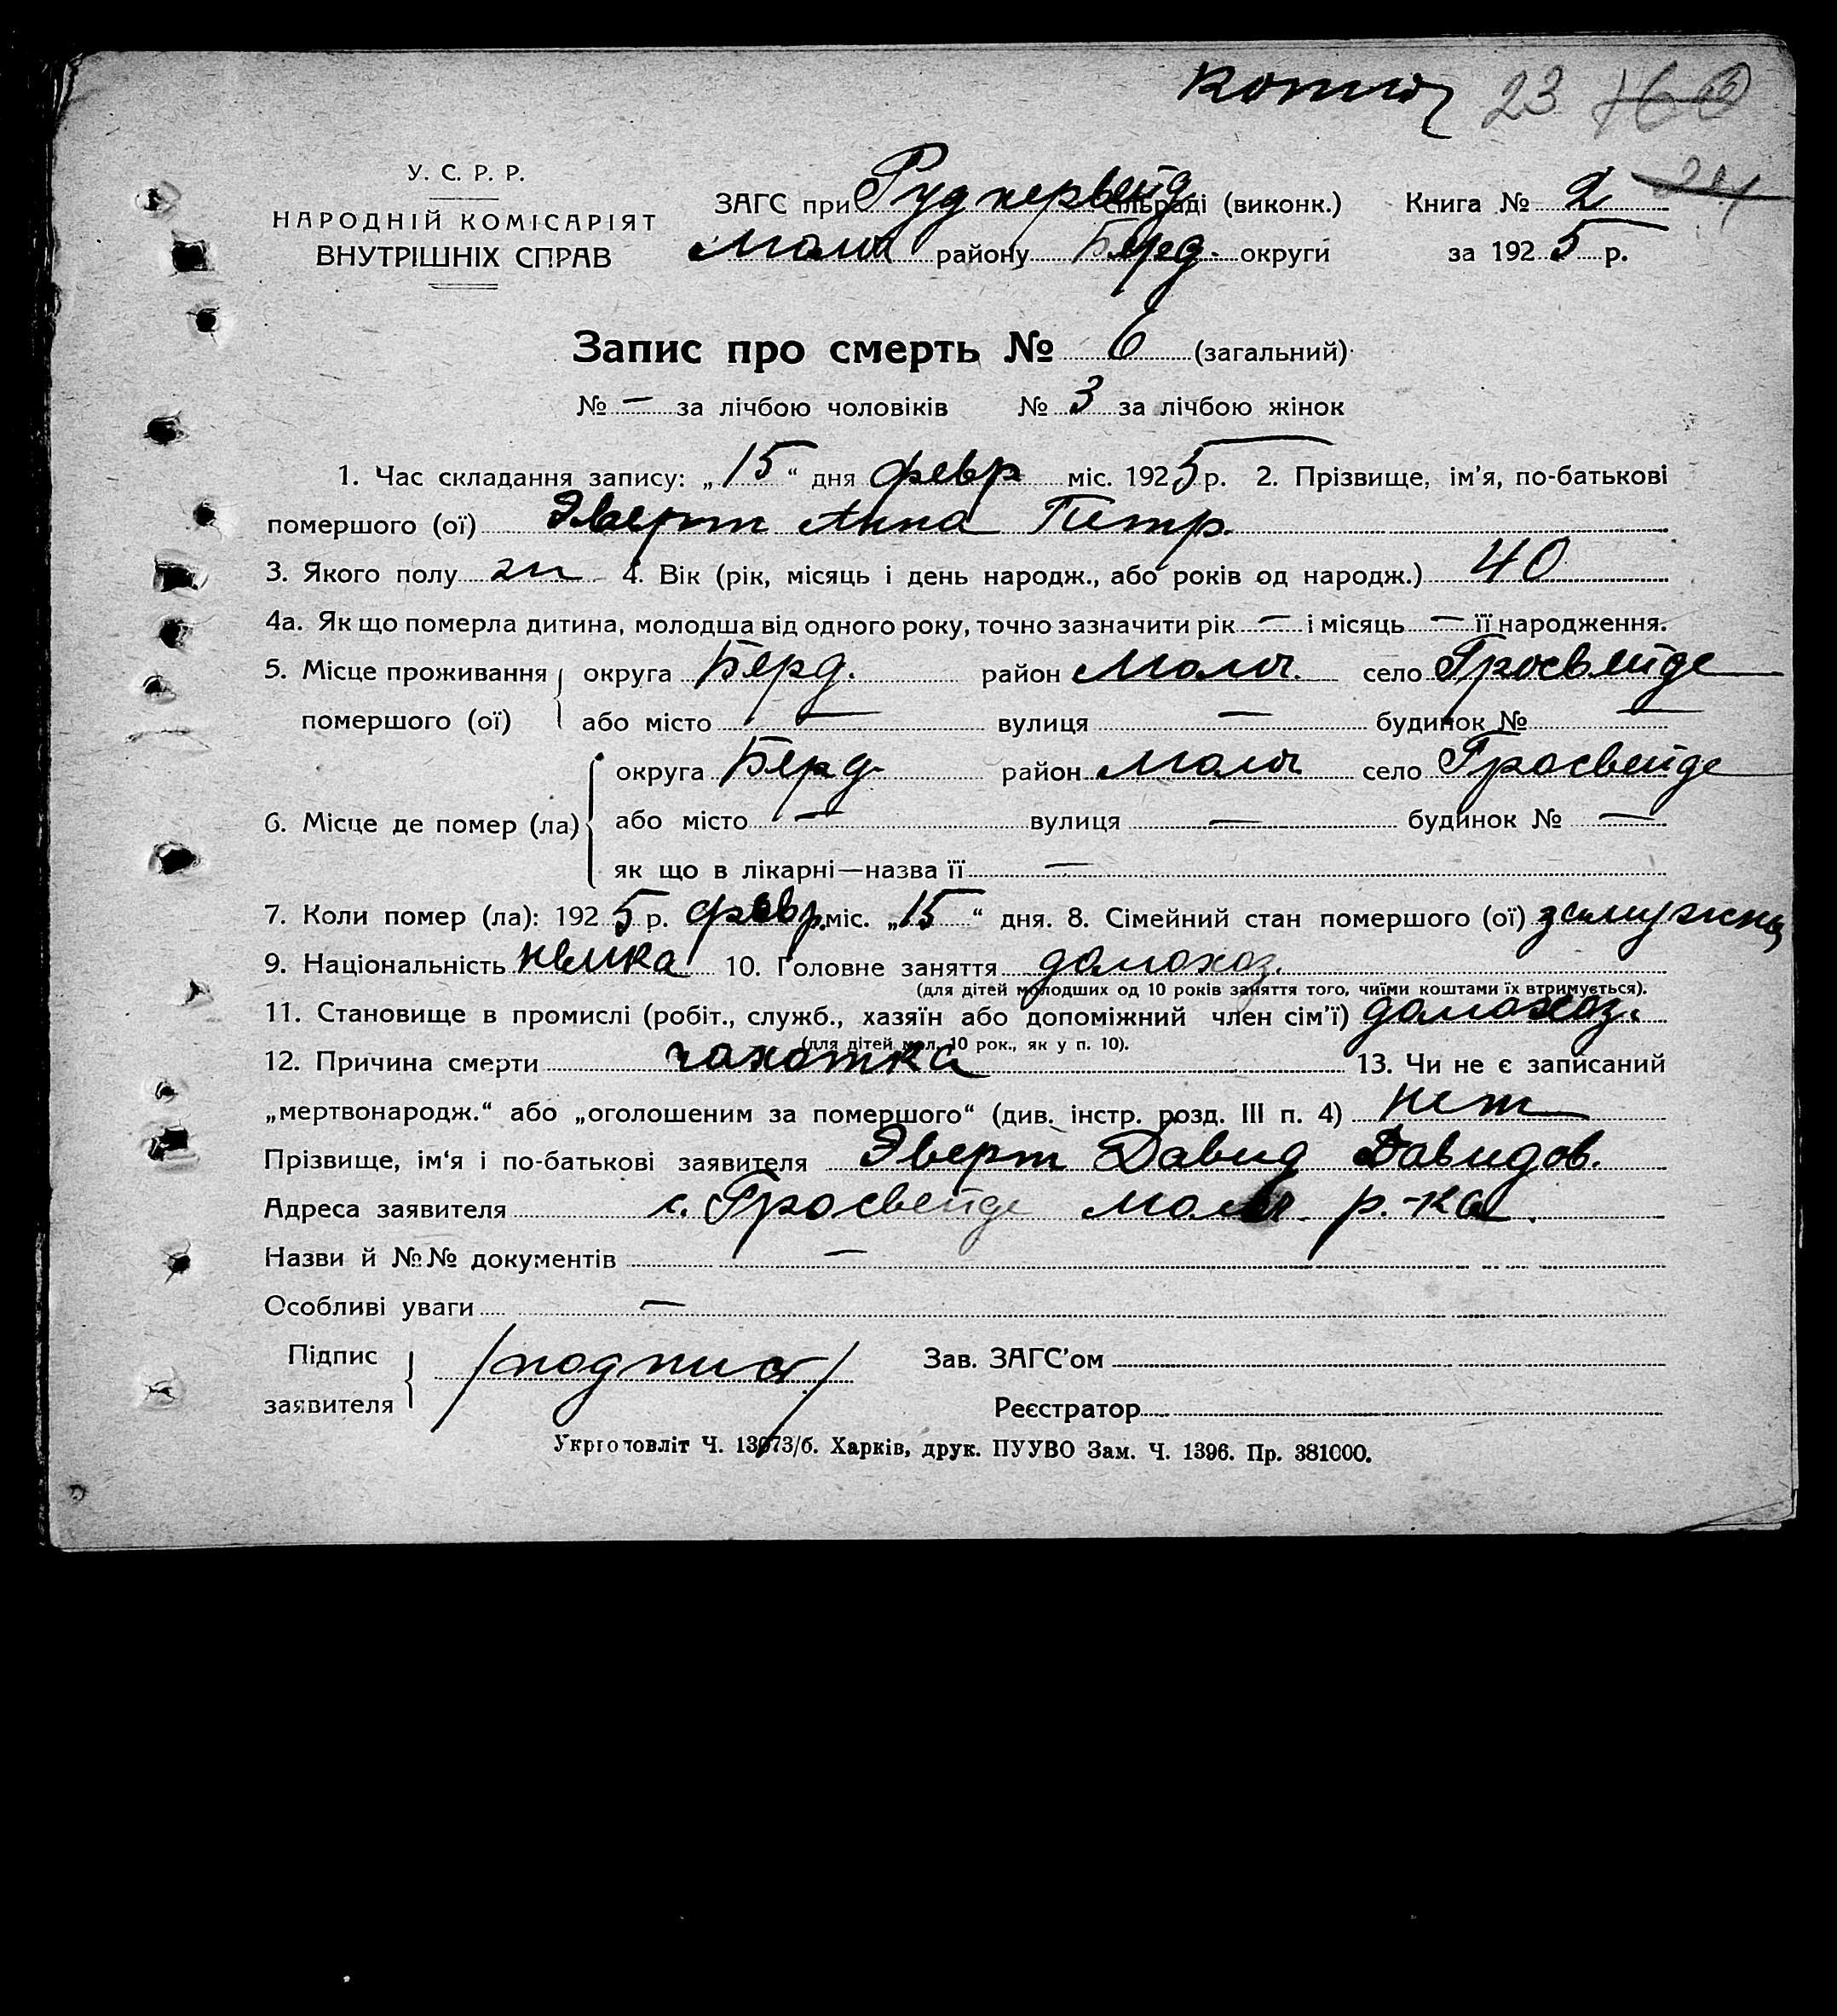 копия 23
У. С. Р. Р.
НАРОДНІЙ КОМІСАРІЯТ
ВНУТРІШНІХ СПРАВ
ЗАГС при Руднервейд сільраді (виконк.) Книга № 2
Молоч району Берд. округи за 1925 р.
Запис про смерть № 6 (загальний)
№ — за лічбою чоловіків № 3 за лічбою жінок
1. Час складання запису: „15“ дня февр міс. 1925 р. 2. Прізвище, ім'я, по-батькові
помершого (ої) Эверт Анна Петр.
3. Якого полу ж 4. Вік (рік, місяць і день народж., або років од народж.) 40
4а. Як що померла дитина, молодша від одного року, точно зазначити рік — і місяць — її народження.
5. Місце проживання помершого (ої) округа Берд. район Молоч. село Гросвейде
або місто — вулиця — будинок № —
6. Місце де помер (ла) округа Берд. район Молоч село Гросвейде
або місто — вулиця — будинок № —
як що в лікарні—назва її —
7. Коли помер (ла): 1925 р. февр. міс. „15“ дня. 8. Сімейний стан помершого (ої) замужняя
9. Національність немка 10. Головне заняття домохоз.
(для дітей молодших од 10 років заняття того, чиїми коштами їх втримується).
11. Становище в промислі (робіт., служб., хазяїн або допоміжний член сім'ї) домохоз.
(для дітей мол. 10 рок., як у п. 10).
12. Причина смерти чахотка 13. Чи не є записаний
„мертвонародж.“ або „оголошеним за помершого“ (див. інстр. розд. III п. 4) нет
Прізвище, ім'я і по-батькові заявителя Эверт Давид Давидов.
Адреса заявителя с. Гросвейде Молоч. р.-ка.
Назви й №№ документів —
Особливі уваги —
Підпис заявителя /подпись/ Зав. ЗАГС'ом
Реєстратор
Укрголовліт Ч. 13673/б. Харків, друк. ПУУВО Зам. Ч. 1396. Пр. 381000.